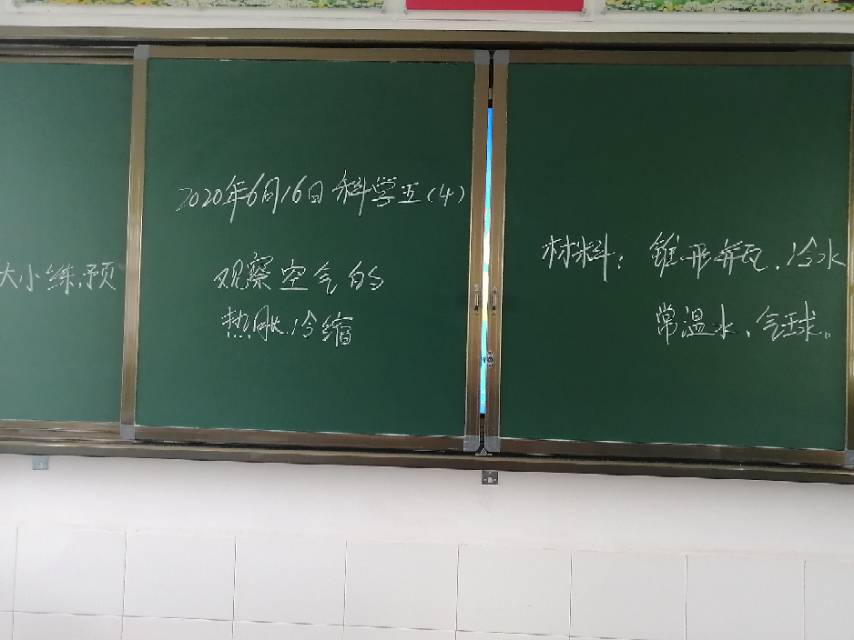 大小练,预
2020年6月16日 科学五(4)
观察空气的
热胀冷缩
材料：锥形瓶、冷水
常温水、气球。